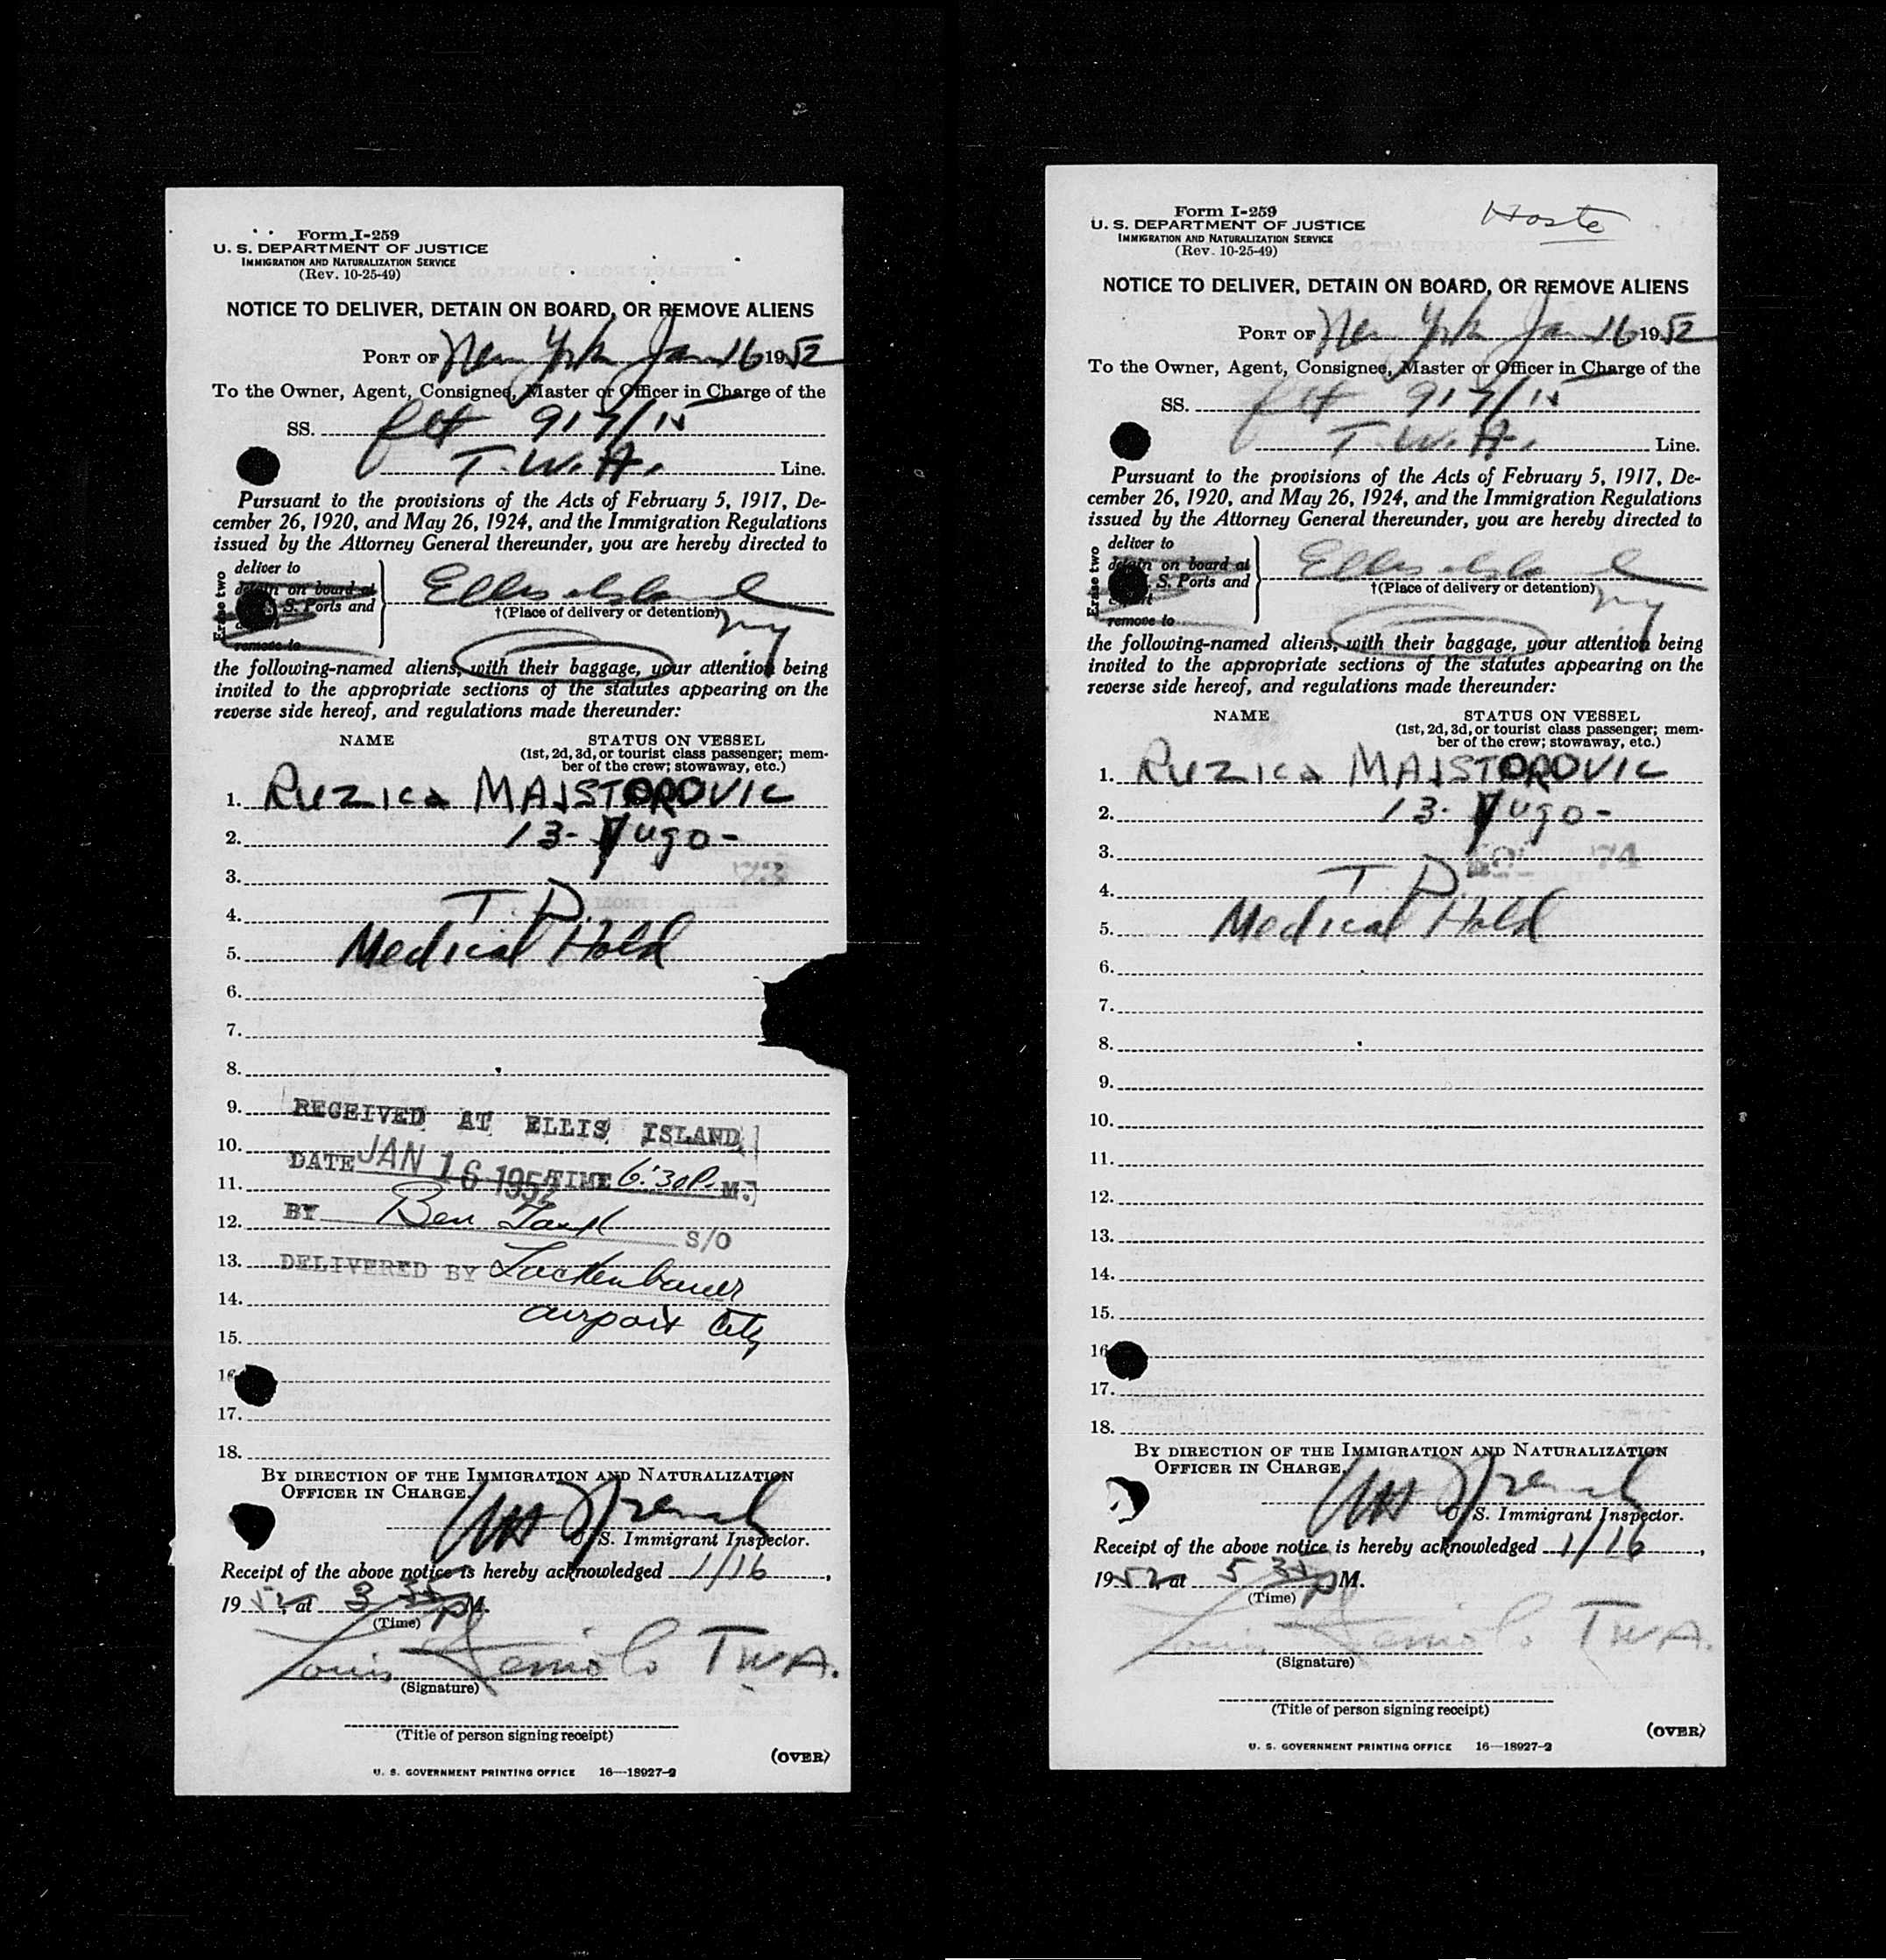 Form I-259
U. S. DEPARTMENT OF JUSTICE
IMMIGRATION AND NATURALIZATION SERVICE
(Rev. 10-25-49)
NOTICE TO DELIVER, DETAIN ON BOARD, OR REMOVE ALIENS
PORT OF New York Jan 16 1952
To the Owner, Agent, Consignee, Master or Officer in Charge of the
SS. flt 917/15
T.W.A. Line.
Pursuant to the provisions of the Acts of February 5, 1917, De-
cember 26, 1920, and May 26, 1924, and the Immigration Regulations
issued by the Attorney General thereunder, you are hereby directed to
Erase two
deliver to
detain on board at
S. Ports and
remove to
Ellis Island
†(Place of delivery or detention)
NY
the following-named aliens, with their baggage, your attention being
invited to the appropriate sections of the statutes appearing on the
reverse side hereof, and regulations made thereunder:
NAME STATUS ON VESSEL
(1st, 2d, 3d, or tourist class passenger; mem-
ber of the crew; stowaway, etc.)
1. Ruzica MAJSTOROVIC
2. 13- Yugo-
3. 73
4. T. D.
5. Medical Hold
6.
7.
8.
9. RECEIVED AT ELLIS ISLAND
10.
DATE JAN 16 1952 TIME 6:30 P. M.
11.
12. BY Ben
S/O
13. DELIVERED BY Lackenbauer
14. airport City
15.
16
17.
18.
BY DIRECTION OF THE IMMIGRATION AND NATURALIZATION
OFFICER IN CHARGE.
U. S. Immigrant Inspector.
Receipt of the above notice is hereby acknowledged 1/16,
1952, at 3 35 PM.
(Time)
Louis TWA.
(Signature)
(Title of person signing receipt)
(OVER)
U. S. GOVERNMENT PRINTING OFFICE 16—18927-2
Form I-259
U. S. DEPARTMENT OF JUSTICE
IMMIGRATION AND NATURALIZATION SERVICE
(Rev. 10-25-49)
Hoste
NOTICE TO DELIVER, DETAIN ON BOARD, OR REMOVE ALIENS
PORT OF New York Jan 16 1952
To the Owner, Agent, Consignee, Master or Officer in Charge of the
SS. flt 917/15
T.W.A. Line.
Pursuant to the provisions of the Acts of February 5, 1917, De-
cember 26, 1920, and May 26, 1924, and the Immigration Regulations
issued by the Attorney General thereunder, you are hereby directed to
Erase two
deliver to
detain on board at
S. Ports and
remove to
Ellis Island
†(Place of delivery or detention)
NY
the following-named aliens, with their baggage, your attention being
invited to the appropriate sections of the statutes appearing on the
reverse side hereof, and regulations made thereunder:
NAME STATUS ON VESSEL
(1st, 2d, 3d, or tourist class passenger; mem-
ber of the crew; stowaway, etc.)
1. Ruzica MAJSTOROVIC
2. 13- Yugo-
3. 74
4. T. D.
5. Medical Hold
6.
7.
8.
9.
10.
11.
12.
13.
14.
15.
16
17.
18.
BY DIRECTION OF THE IMMIGRATION AND NATURALIZATION
OFFICER IN CHARGE.
U. S. Immigrant Inspector.
Receipt of the above notice is hereby acknowledged 1/16,
1952, at 5 35 PM.
(Time)
Louis TWA.
(Signature)
(Title of person signing receipt)
(OVER)
U. S. GOVERNMENT PRINTING OFFICE 16—18927-2